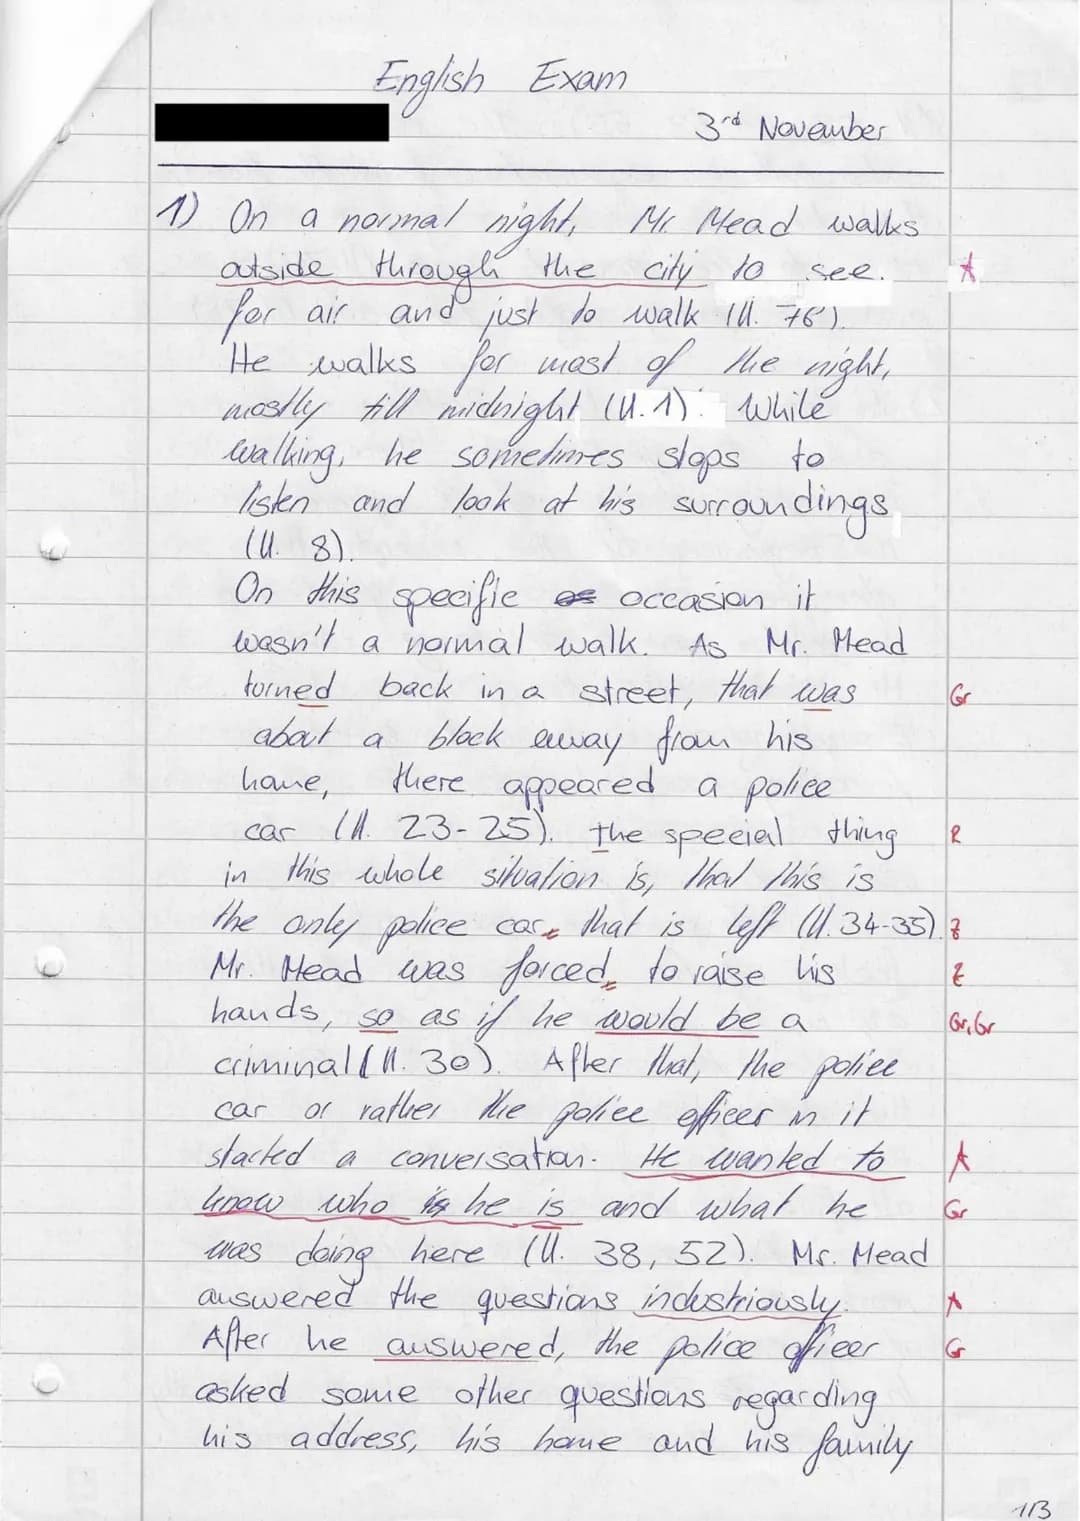 English Exam
3rd November
1) On a normal night, Mr. Mead walks
outside through the city to see. A
for air and just to walk (ll. 76').
He walks for most of the night,
mostly till midnight (ll. 1). While
walking, he sometimes stops to
listen and look at his surroundings
(ll. 8).
On this specific occasion it
wasn't a normal walk. As Mr. Mead
turned back in a street, that was Gr
about a block away from his
home, there appeared a police
car (ll. 23-25). the special thing R
in this whole situation is, that this is
the only police car, that is left (ll. 34-35). Z
Mr. Mead was forced, to raise his Z
hands, so as if he would be a Gr, Gr
criminal (ll. 30). After that, the police
car or rather the police officer in it
started a conversation. He wanted to A
know who is he is and what he Gr
was doing here (ll. 38, 52). Mr. Mead
answered the questions industriously. A
After he answered, the police officer G
asked some other questions regarding
his address, his home and his family
1/3